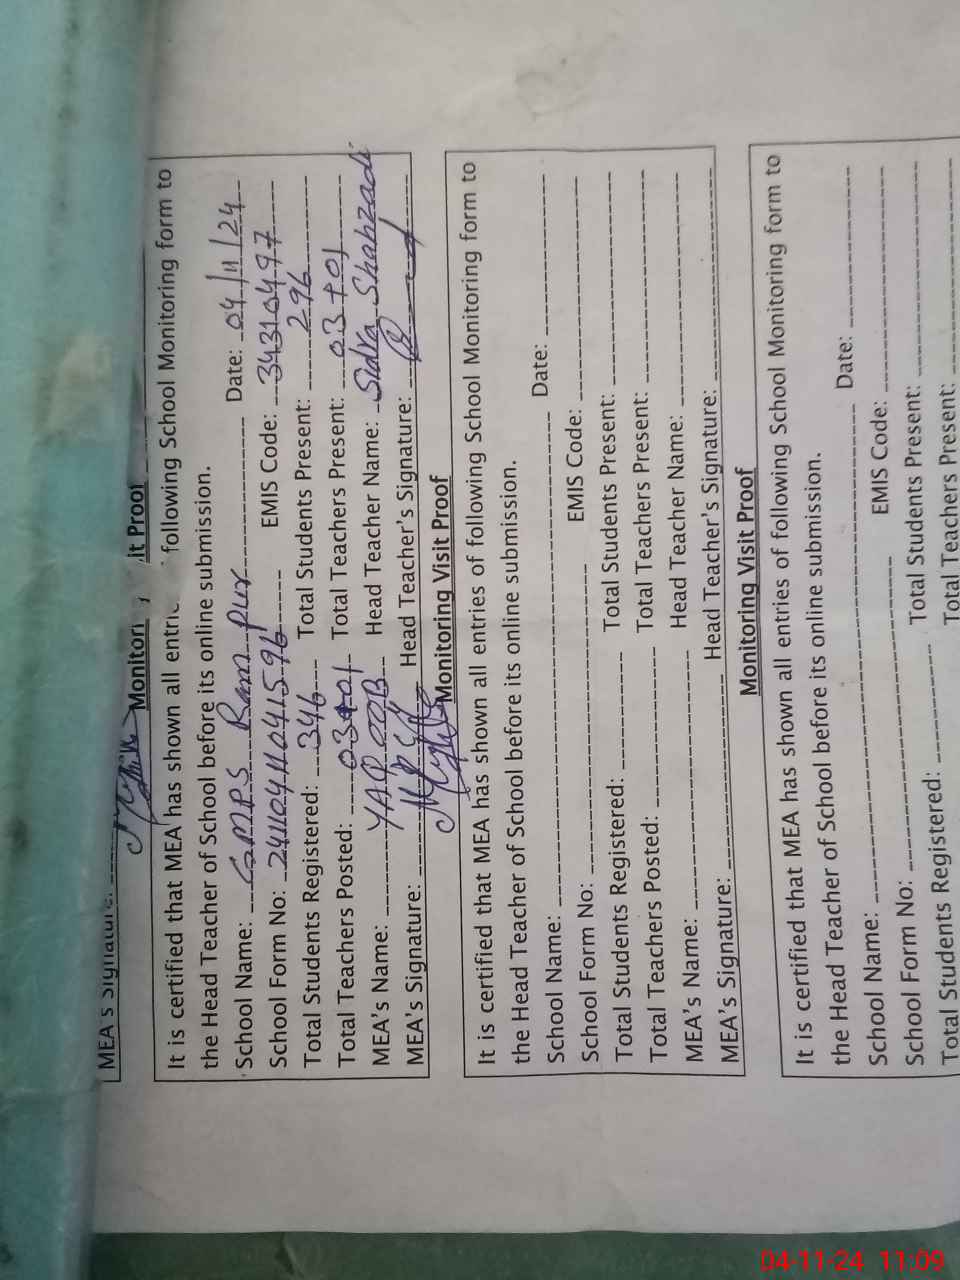 MEA's Signature:
Monitori it Proof
It is certified that MEA has shown all entri following School Monitoring form to
the Head Teacher of School before its online submission.
School Name: GMPS Ram pur Date: 04/11/24
School Form No: EMIS Code: 34310497
Total Students Registered: 346 Total Students Present: 296
Total Teachers Posted: 03+01 Total Teachers Present: 03+01
MEA's Name: Head Teacher Name: Sidra Shahzadi
MEA's Signature: Head Teacher's Signature:
Monitoring Visit Proof
It is certified that MEA has shown all entries of following School Monitoring form to
the Head Teacher of School before its online submission.
School Name: Date:
School Form No: EMIS Code:
Total Students Registered: Total Students Present:
Total Teachers Posted: Total Teachers Present:
MEA's Name: Head Teacher Name:
MEA's Signature: Head Teacher's Signature:
Monitoring Visit Proof
It is certified that MEA has shown all entries of following School Monitoring form to
the Head Teacher of School before its online submission.
School Name: Date:
School Form No: EMIS Code:
Total Students Registered: Total Students Present:
Total Teachers Present:
04-11-24 11:09